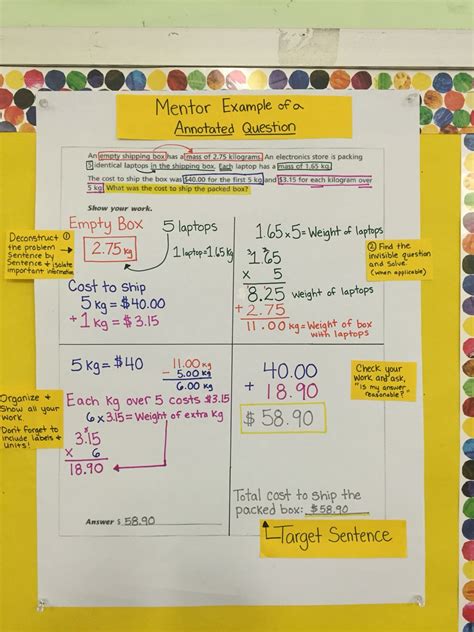 Mentor Example of a
Annotated Question
An empty shipping box has a mass of 2.75 kilograms. An electronics store is packing
5 identical laptops in the shipping box. Each laptop has a mass of 1.65 kg.
The cost to ship the box was $40.00 for the first 5 kg and $3.15 for each kilogram over
5 kg. What was the cost to ship the packed box?
Show your work.
Deconstruct ①
the problem
sentence by
sentence & isolate
important information
Empty Box
2.75 kg
5 laptops
1 laptop=1.65 kg
Cost to ship
5 kg = $40.00
+1 kg = $3.15
1.65 x 5 = Weight of laptops
3 2
1.65
x 5
8.25 weight of laptops
+ 2.75
11.00 kg = Weight of box
with laptops
② Find the
invisible question
and solve.
(when applicable)
Organize &
Show all your
work
Don't forget to
include labels &
units!
5 kg = $40
11.00 kg
- 5.00 kg
6.00 kg
Each kg over 5 costs $3.15
6 x 3.15 = Weight of extra kg
3.15
x 6
18.90
Answer $ 58.90
40.00
+ 18.90
$ 58.90
Check your
work and ask,
"is my answer
reasonable?"
Total cost to ship the
packed box: $58.90
Target Sentence